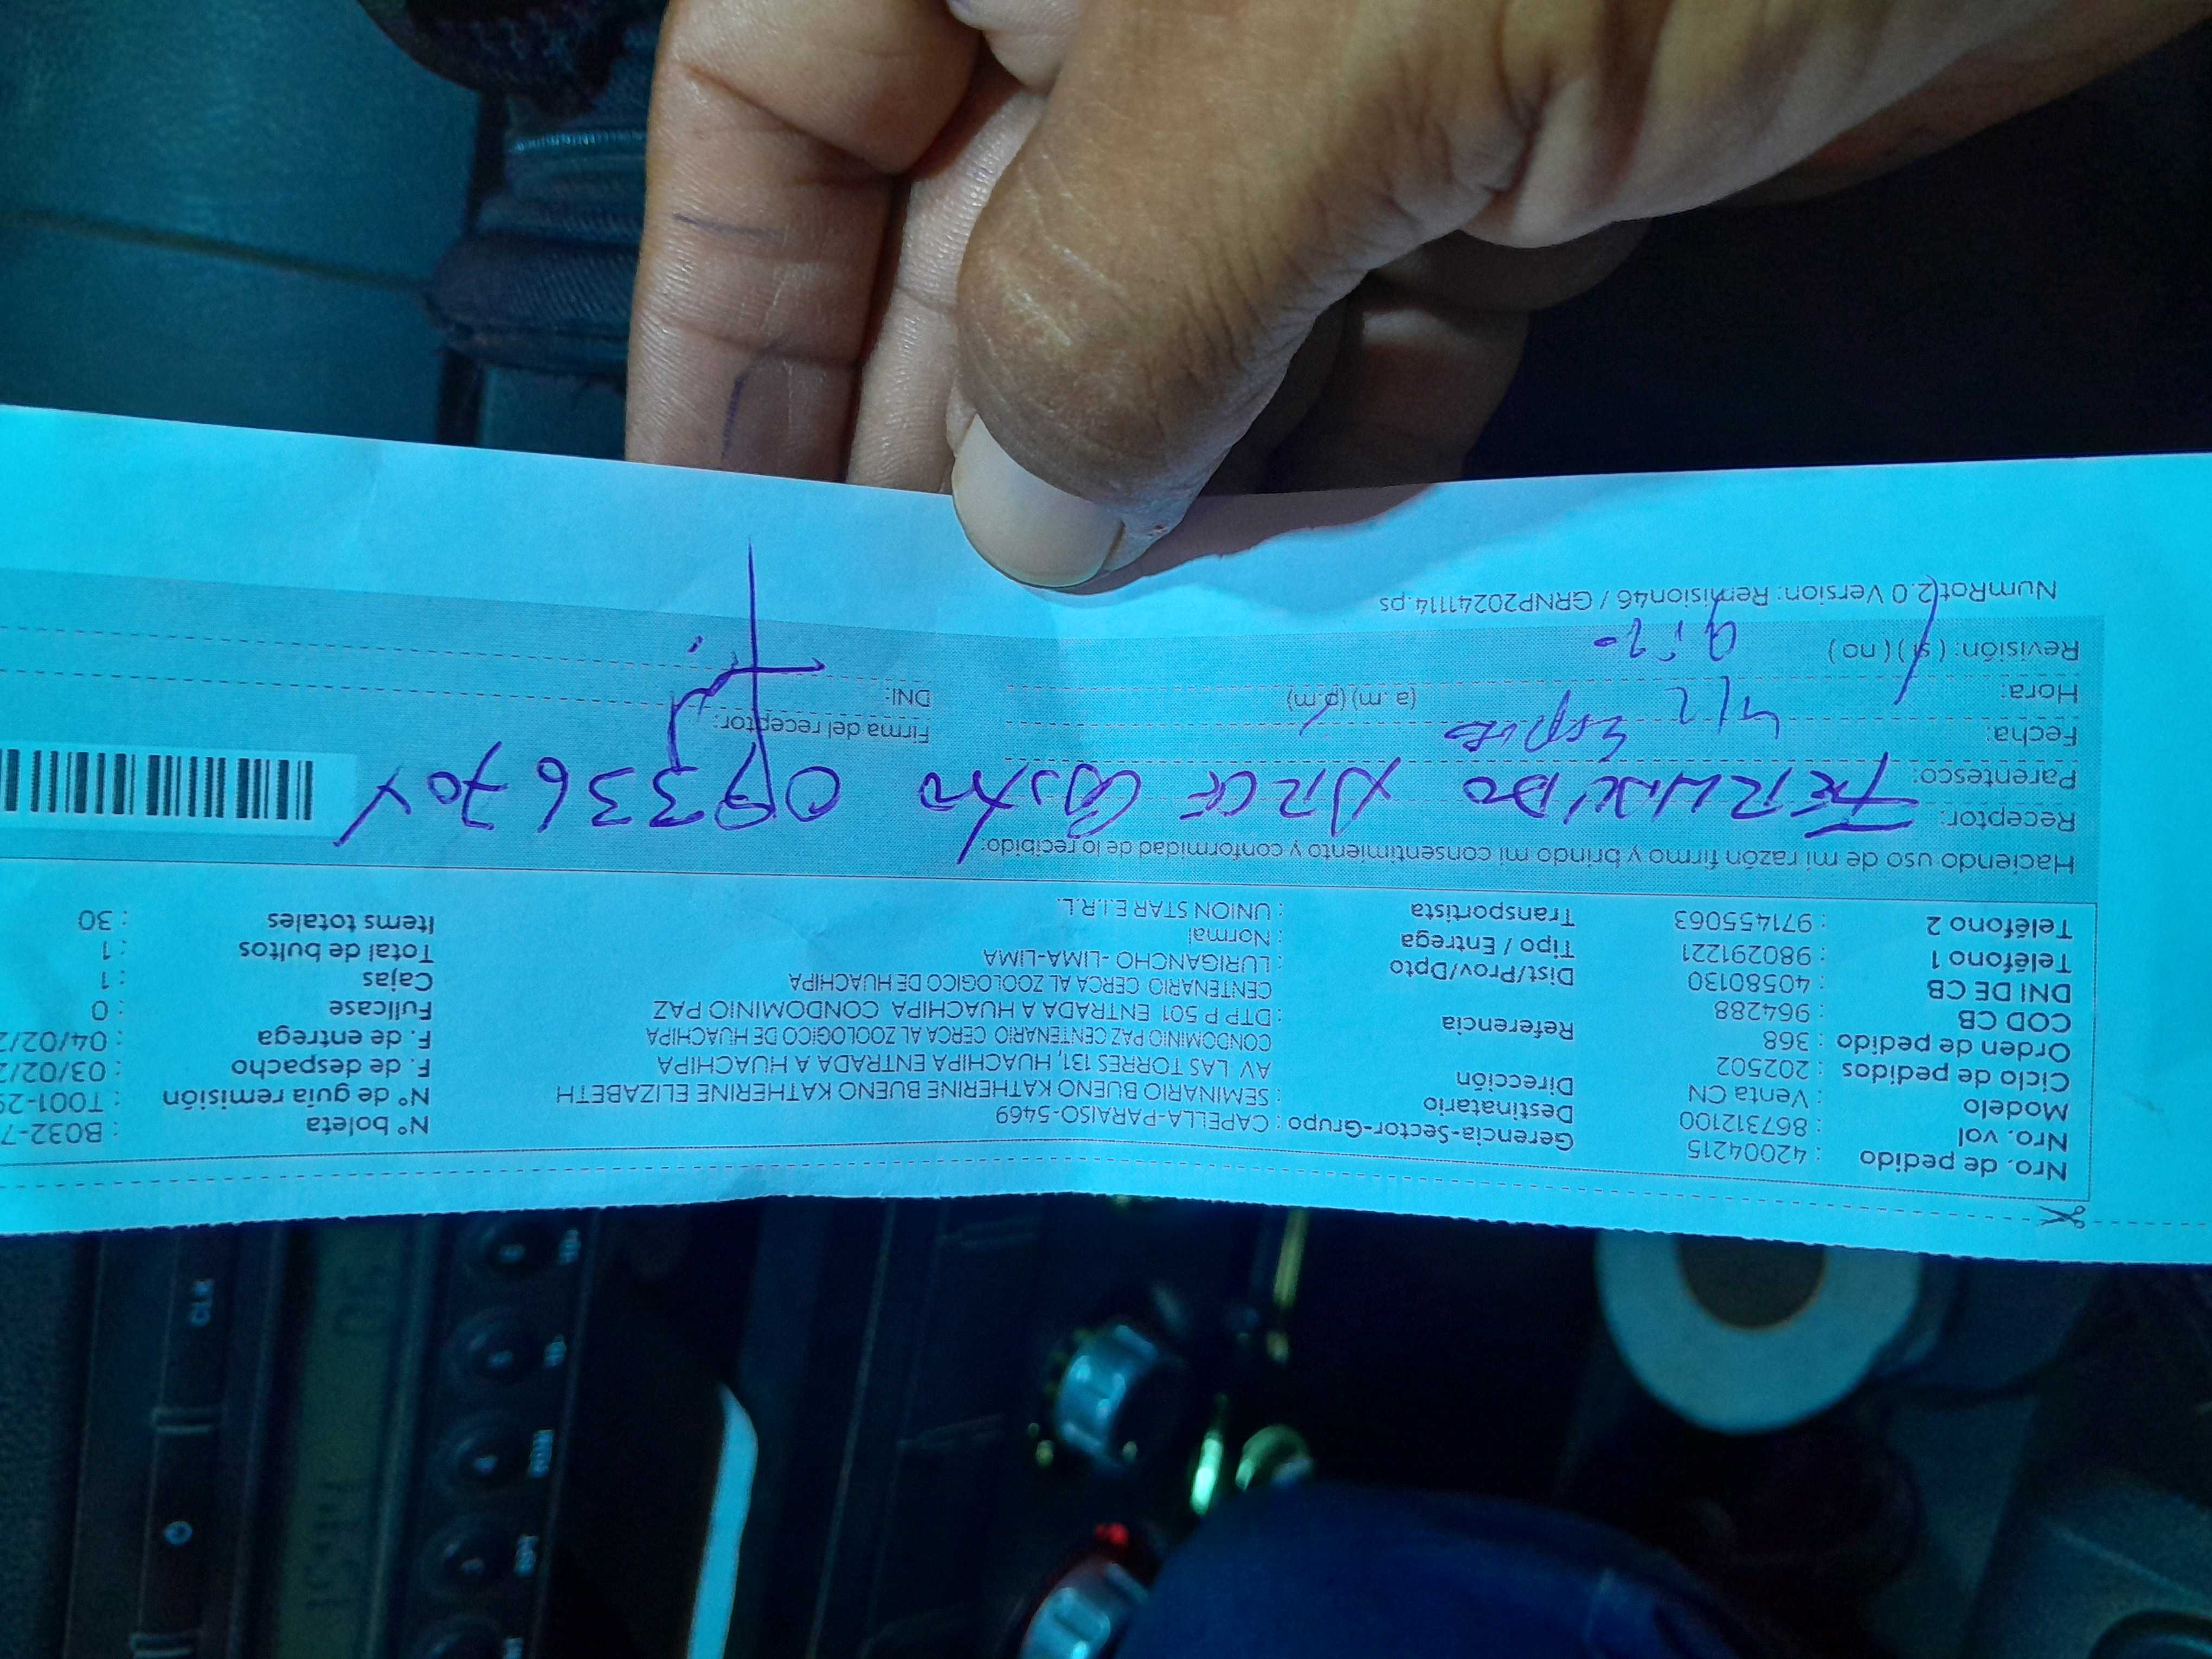 Nro. de pedido : 42004215 Gerencia-Sector-Grupo : CAPELLA-PARAISO-5469 N° boleta : B032-7
Nro. vol : 867312100 Destinatario : SEMINARIO BUENO KATHERINE BUENO KATHERINE ELIZABETH N° de guía remisión : T001-29
Modelo : Venta CN Dirección AV. LAS TORRES 131, HUACHIPA ENTRADA A HUACHIPA F. de despacho : 03/02/2
Ciclo de pedidos : 202502 CONDOMINIO PAZ CENTENARIO CERCA AL ZOOLOGICO DE HUACHIPA F. de entrega : 04/02/2
Orden de pedido : 368 Referencia : DTP P 501 ENTRADA A HUACHIPA CONDOMINIO PAZ Fullcase : 0
COD CB : 964288 CENTENARIO CERCA AL ZOOLOGICO DE HUACHIPA Cajas : 1
DNI DE CB : 40580130 Dist/Prov/Dpto : LURIGANCHO - LIMA-LIMA Total de bultos : 1
Teléfono 1 : 980291221 Tipo / Entrega : Normal Items totales : 30
Teléfono 2 : 971455063 Transportista : UNION STAR E.I.R.L.
Haciendo uso de mi razón firmo y brindo mi consentimiento y conformidad de lo recibido:
Receptor: FERNANDO ARCE
Parentesco:
Fecha: 4/2 Firma del receptor:
Hora: (a. m) (p.m) DNI:
Revisión: (si) (no)
NumRot2.0 Version: Remision46 / GRNP20241114.ps
CLK